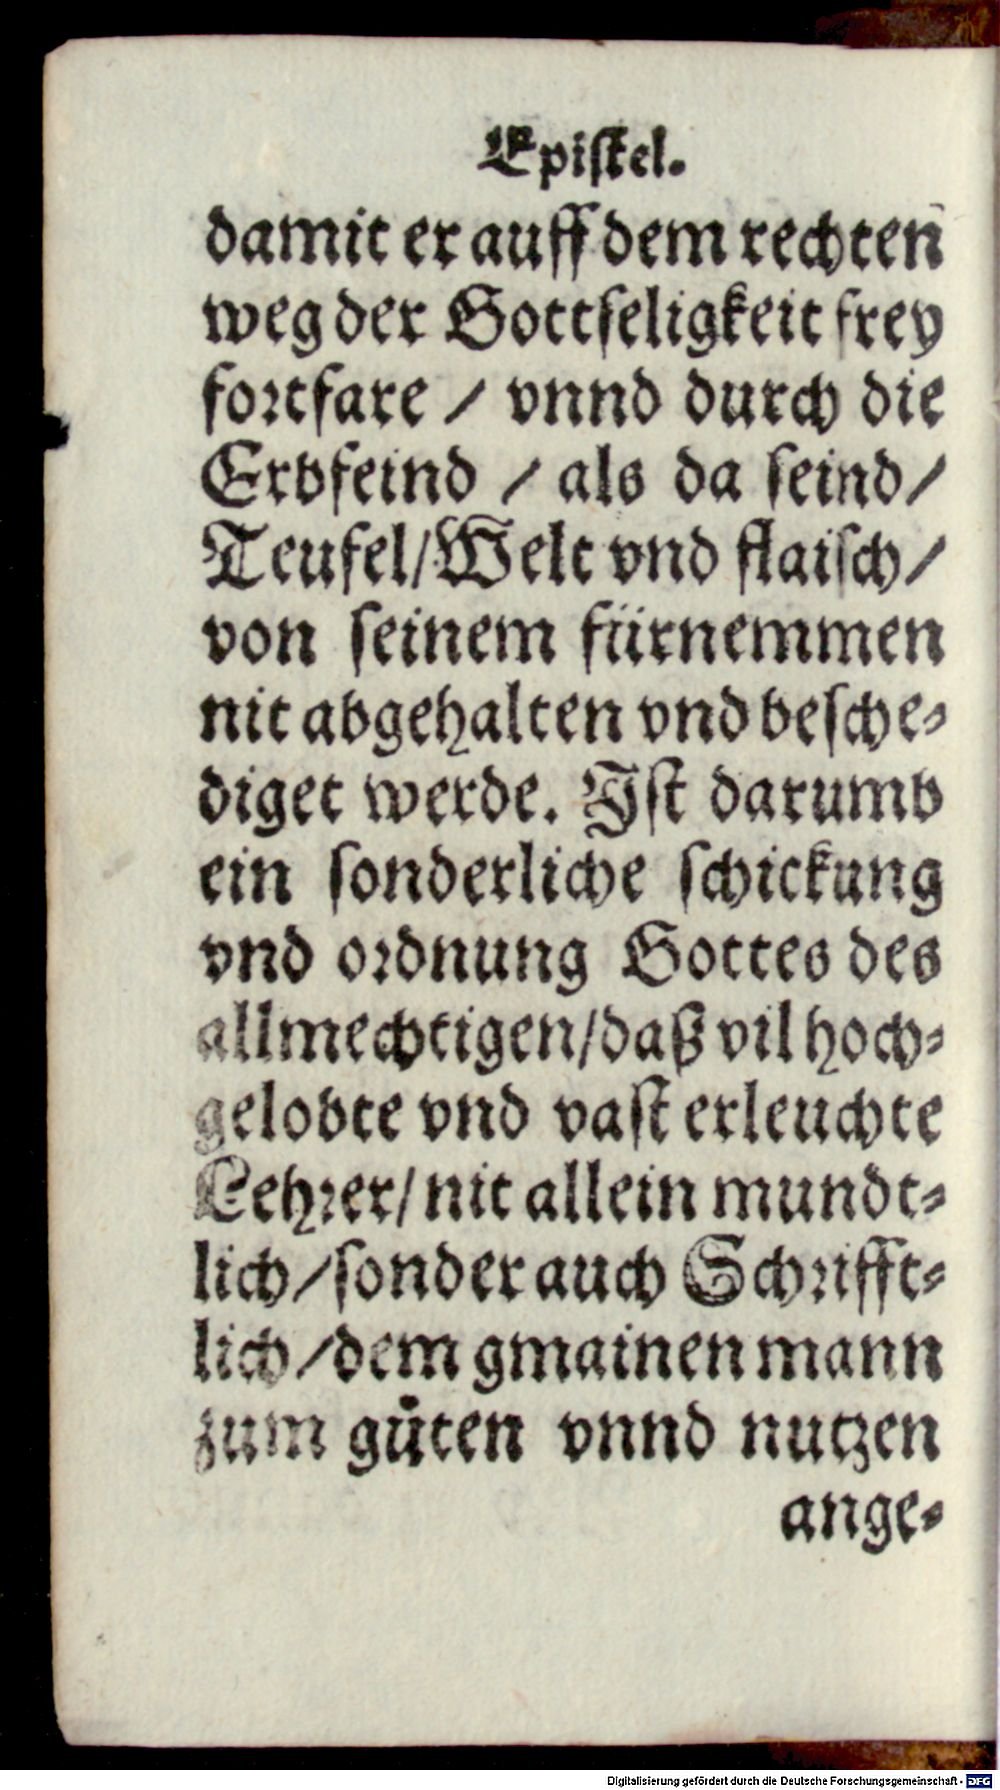 Epiſtel.
damit er auff dem rechten
weg der Gottſeligkeit frey
fortfare / vnnd durch die
Erbfeind / als da ſeind /
Teufel / Welt vnd flaiſch /
von ſeinem fürnemmen
nit abgehalten vnd beſche⸗
diget werde. Iſt darumb
ein ſonderliche ſchickung
vnd ordnung Gottes des
allmechtigen / daß vil hoch⸗
gelobte vnd vaſt erleuchte
Lehrer / nit allein mundt⸗
lich / ſonder auch Schrifft⸗
lich / dem gmainen mann
zum gůten vnnd nutzen
ange⸗
Digitalisierung gefördert durch die Deutsche Forschungsgemeinschaft - DFG